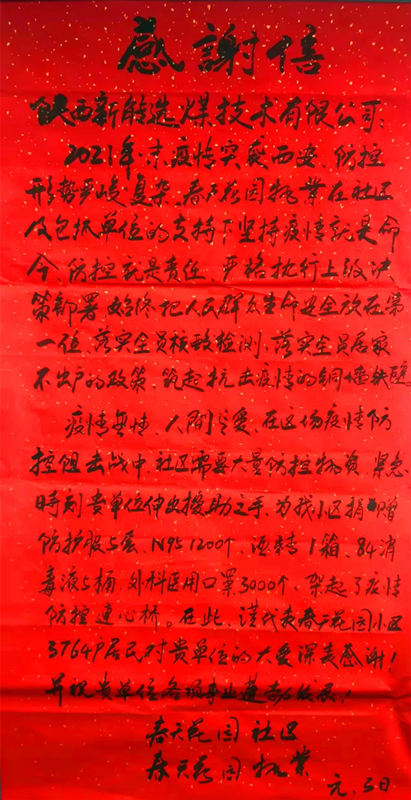 感謝信
陕西新能选煤技术有限公司：
2021年末疫情突袭西安、防控
形势严峻复杂、春天花园物业在社区
及包抓单位的支持下坚持疫情就是命
令、防控就是责任、严格执行上级决
策部署、始终把人民群众生命安全放在第
一位、落实全员核酸检测、落实全员居家
不出户的政策、筑起抗击疫情的铜墙铁壁
疫情無情、人间有爱、在这场疫情防
控阻击战中、社区需要大量防控物资、紧急
時刻贵单位伸出援助之手、为我小区捐赠
防护服5套、N95 1200个、酒精1箱、84消
毒液5桶、外科医用口罩3000个、架起了疫情
防控連心桥。在此、谨代表春天花园小区
3764户居民对贵单位的大爱深表感谢！
并祝贵单位各项事业蓬勃发展！
春天花园社区
春天花园物业
元.5日